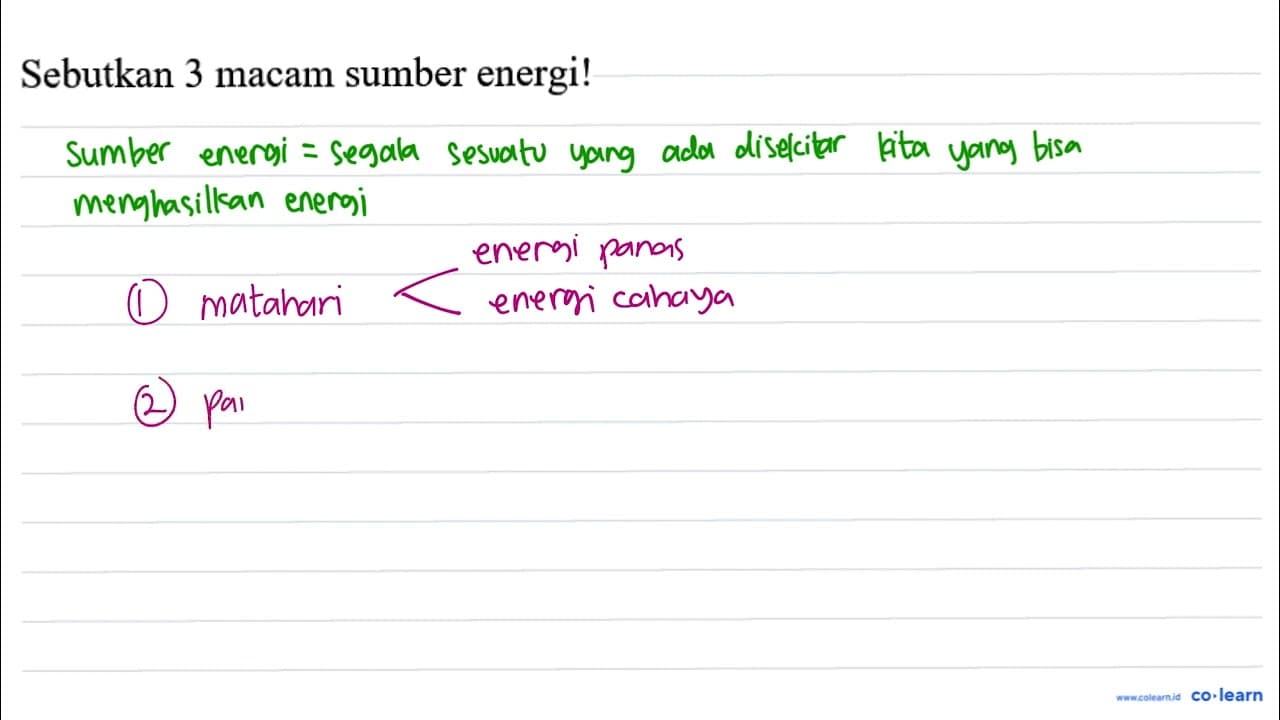 Sebutkan 3 macam sumber energi!
Sumber energi = segala sesuatu yang ada disekitar kita yang bisa
menghasilkan energi
energi panas
① matahari
energi cahaya
② pai
www.colearn.id co·learn